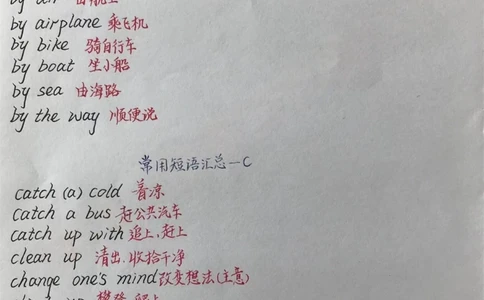 by air
by airplane 乘飞机
by bike 骑自行车
by boat 坐小船
by sea 由海路
by the way 顺便说
常用短语汇总—C
catch (a) cold 着凉
catch a bus 赶公共汽车
catch up with 追上,赶上
clean up 清出,收拾干净
change one's mind 改变想法(主意)